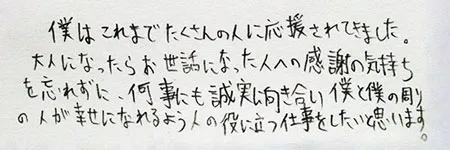 僕はこれまでたくさんの人に応援されてきました。
大人になったらお世話になった人への感謝の気持ち
を忘れずに、何事にも誠実に向き合い僕と僕の周り
の人が幸せになれるよう人の役に立つ仕事をしたいと思います。